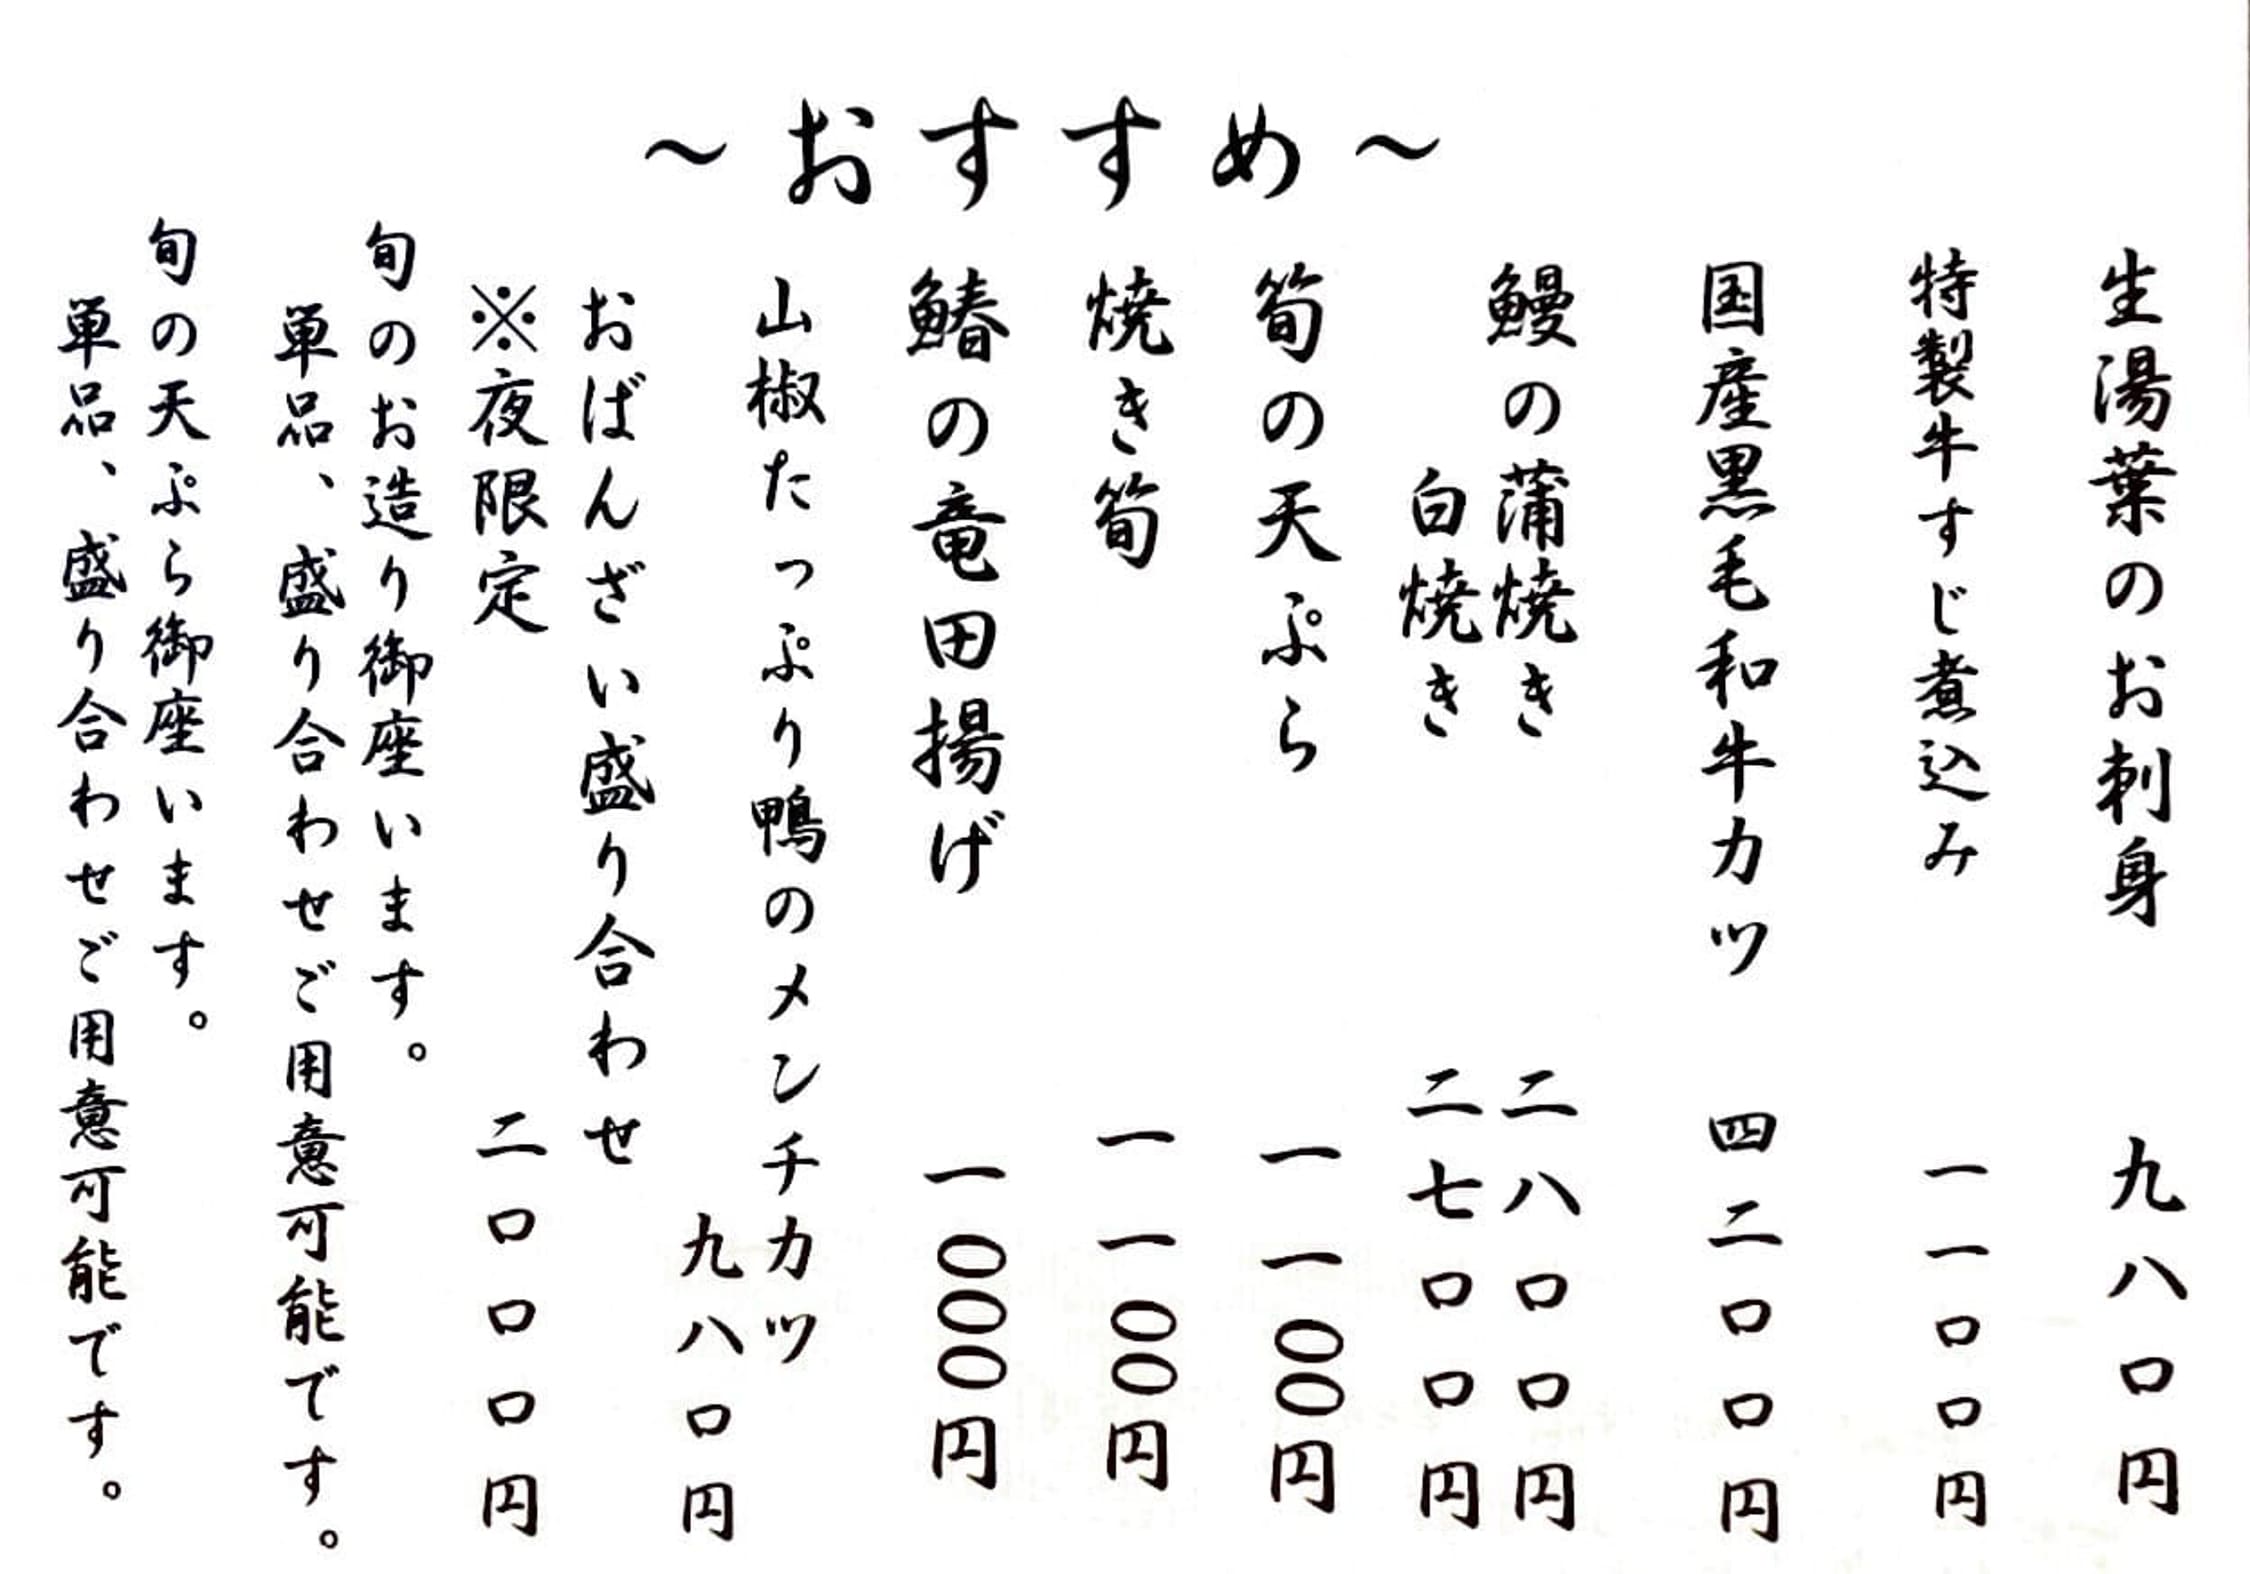 ~おすすめ~
生湯葉のお刺身 九八〇円
特製牛すじ煮込み 一一〇〇円
国産黒毛和牛カツ 四二〇〇円
鰻の蒲焼き 二八〇〇円
白焼き 二七〇〇円
筍の天ぷら 一一〇〇円
焼き筍 一一〇〇円
鰆の竜田揚げ 一〇〇〇円
山椒たっぷり鴨のメンチカツ
九八〇円
おばんざい盛り合わせ
※夜限定 二〇〇〇円
旬のお造り御座います。
単品、盛り合わせご用意可能です。
旬の天ぷら御座います。
単品、盛り合わせご用意可能です。